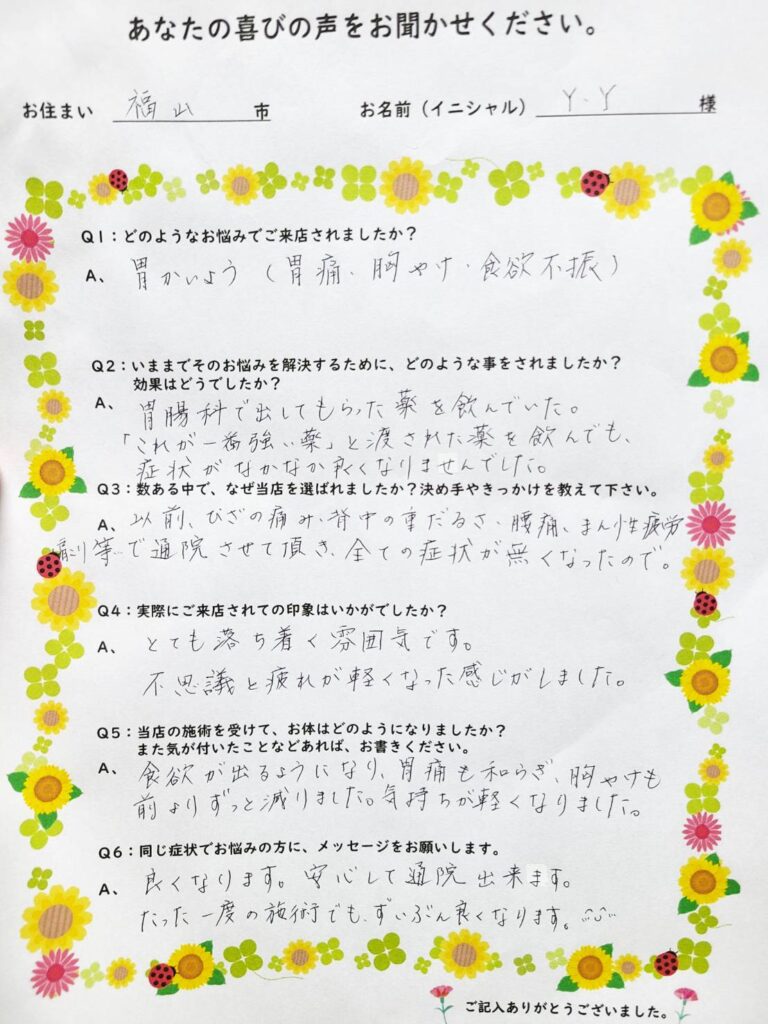 あなたの喜びの声をお聞かせください。
お住まい 福山 市 お名前（イニシャル） Y・Y 様
Q1：どのようなお悩みでご来店されましたか？
A、胃かいよう（胃痛・胸やけ・食欲不振）
Q2：いままでそのお悩みを解決するために、どのような事をされましたか？
効果はどうでしたか？
A、胃腸科で出してもらった薬を飲んでいた。
「これが一番強い薬」と渡された薬を飲んでも、
症状がなかなか良くなりませんでした。
Q3：数ある中で、なぜ当店を選ばれましたか？決め手やきっかけを教えて下さい。
A、以前、ひざの痛み、背中の重だるさ、腰痛、まん性疲労
肩こり等…で通院させて頂き、全ての症状が無くなったので。
Q4：実際にご来店されての印象はいかがでしたか？
A、とても落ち着く雰囲気です。
不思議と疲れが軽くなった感じがしました。
Q5：当店の施術を受けて、お体はどのようになりましたか？
また気が付いたことなどあれば、お書きください。
A、食欲が出るようになり、胃痛も和らぎ、胸やけも
前よりずっと減りました。気持ちが軽くなりました。
Q6：同じ症状でお悩みの方に、メッセージをお願いします。
A、良くなります。安心して通院出来ます。
たった一度の施術でも、ずいぶん良くなります。
ご記入ありがとうございました。